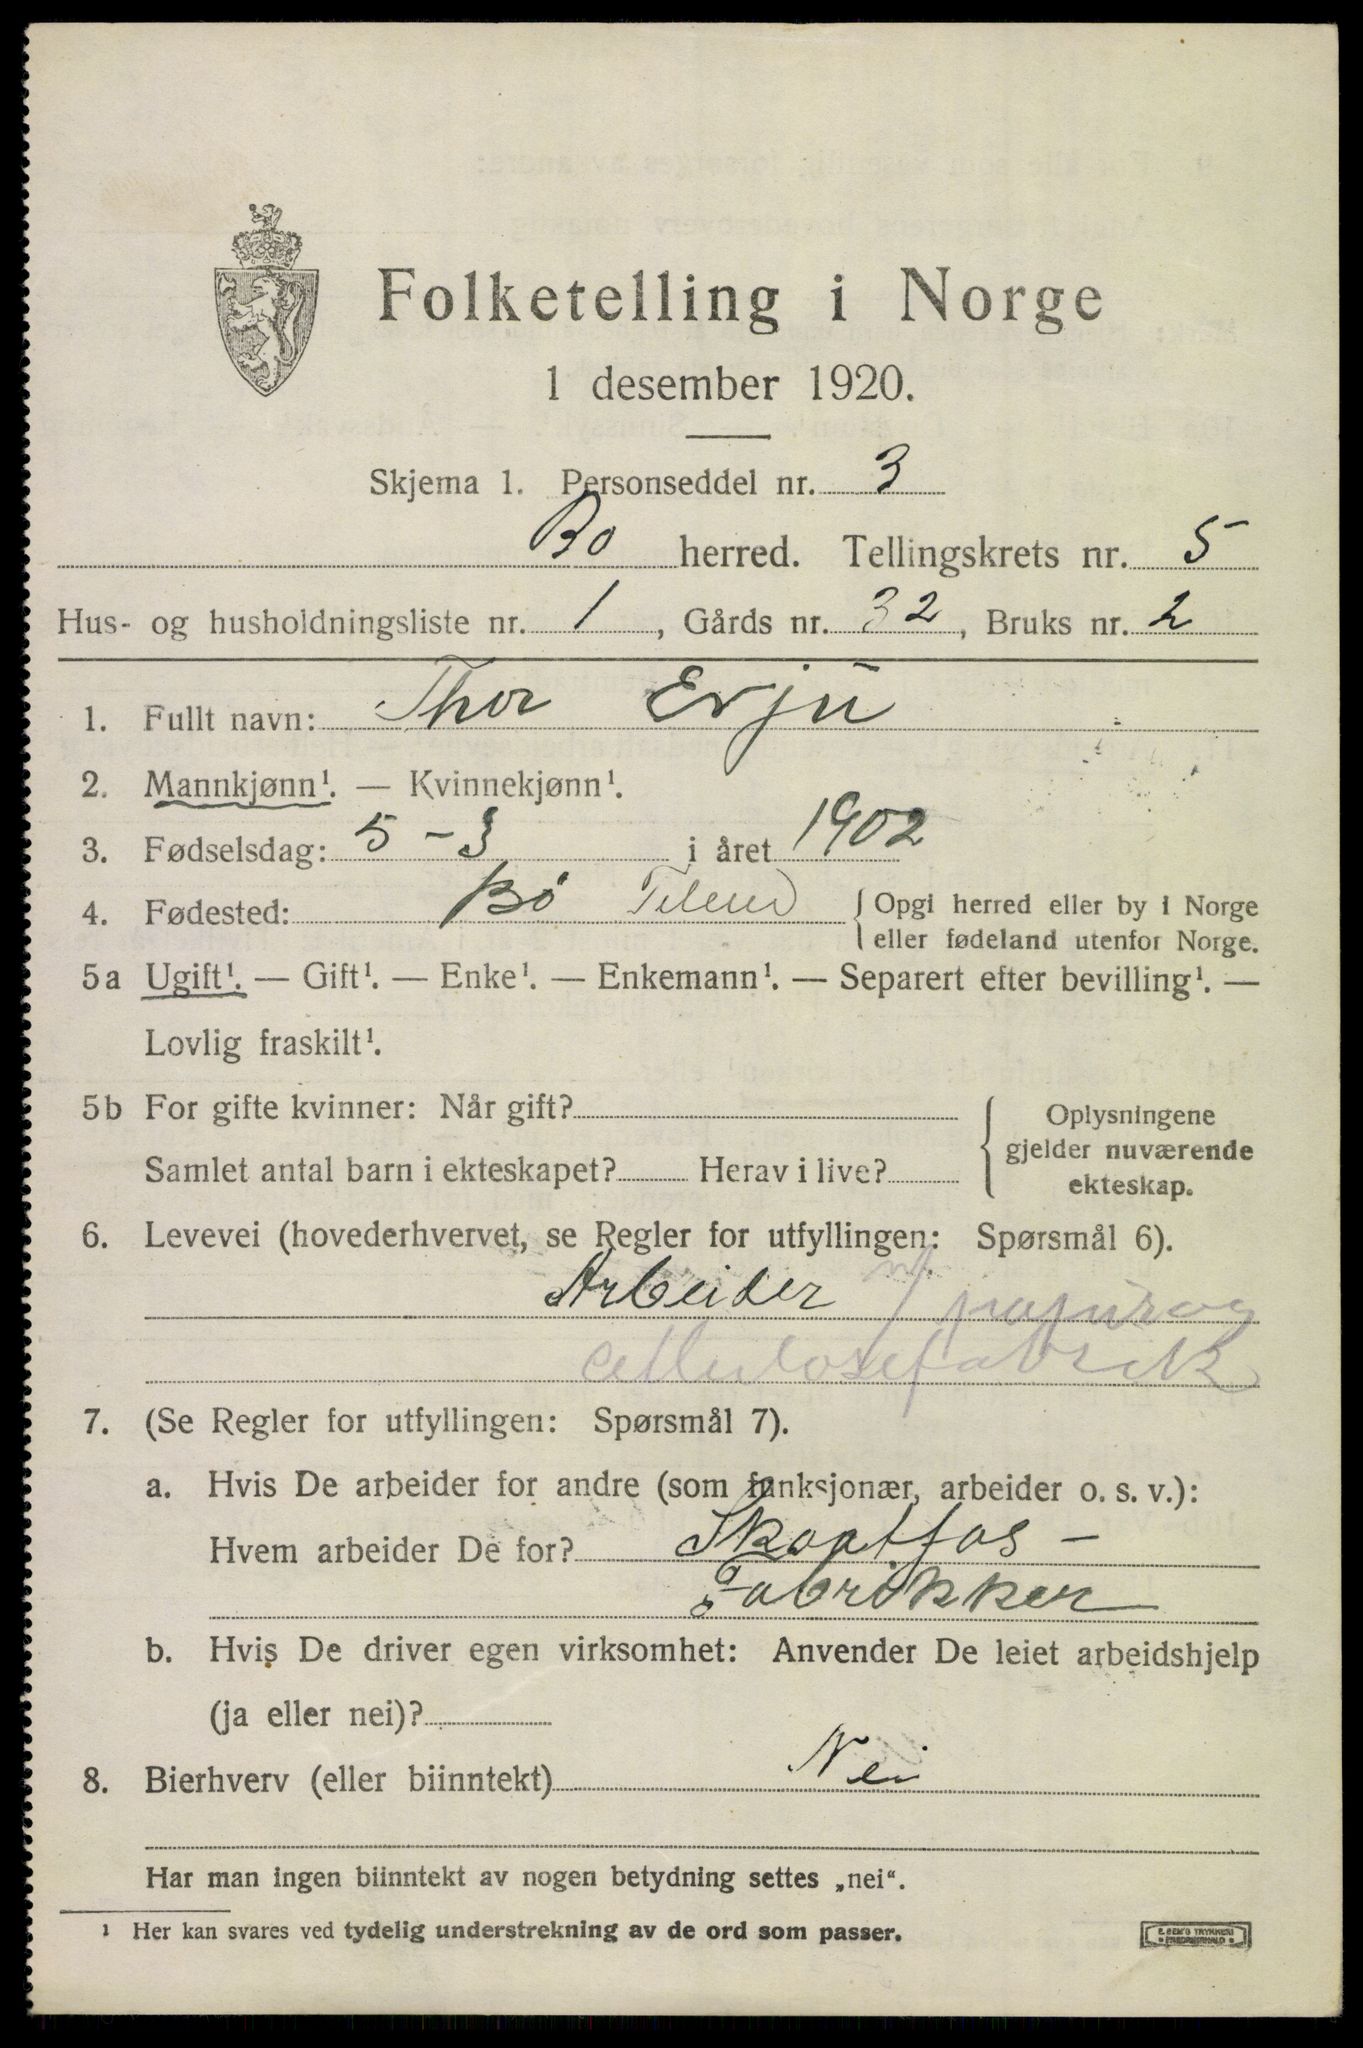 Folketelling i Norge
1 desember 1920.
Skjema 1. Personseddel nr. 3
Bø herred. Tellingskrets nr. 5
Hus- og husholdningsliste nr. 1, Gårds nr. 32, Bruks nr. 2
1. Fullt navn: Thor Evju
2. Mannkjønn¹. — Kvinnekjønn¹.
3. Fødselsdag: 5-3 i året 1902
4. Fødested: Bø Telem {Opgi herred eller by i Norge
eller fødeland utenfor Norge.
5a Ugift¹. — Gift¹. — Enke¹. — Enkemann¹. — Separert efter bevilling¹. —
Lovlig fraskilt¹.
5b For gifte kvinner: Når gift?
Samlet antal barn i ekteskapet? Herav i live?
{Oplysningene
gjelder nuværende
ekteskap.
6. Levevei (hovederhvervet, se Regler for utfyllingen: Spørsmål 6).
Arbeider v/ papir og
cellulosefabrik
7. (Se Regler for utfyllingen: Spørsmål 7).
a. Hvis De arbeider for andre (som funksjonær, arbeider o. s. v.):
Hvem arbeider De for? Skotfos-
Fabrikker
b. Hvis De driver egen virksomhet: Anvender De leiet arbeidshjelp
(ja eller nei)?
8. Bierhverv (eller biinntekt) Nei
Har man ingen biinntekt av nogen betydning settes „nei“.
¹ Her kan svares ved tydelig understrekning av de ord som passer.